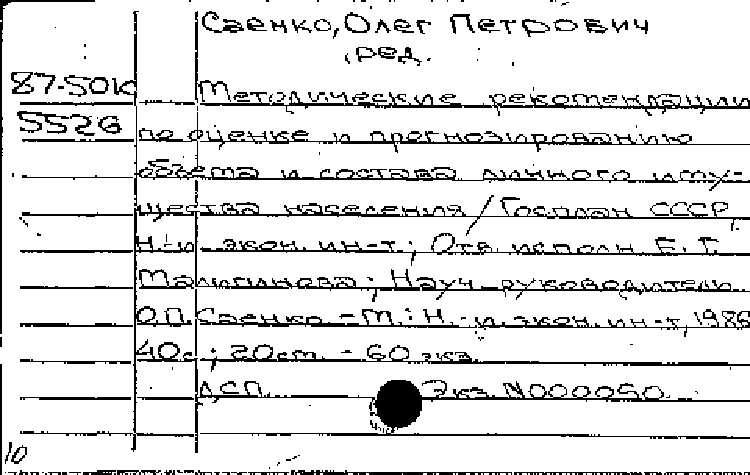 Саенко, Олег Петрович
, ред.
87-50к Методические рекомендации
5526 по оценке и прогнозированию
объема и состава личного иму-
щества населения / Госплан СССР,
Н.-и. экон. ин-т; Отв. исполн. Е. Г.
Малигинова; Науч. руководитель
О.П. Саенко. - М.: Н.-и. экон. ин-т, 1986
40с.; 20см. - 60 экз.
ДСП. Экз. N000050.
10